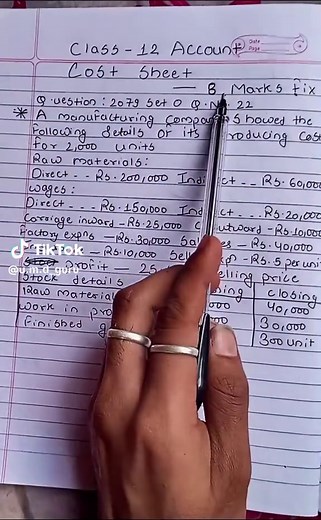 Class-12 Account
Date
Page
Cost sheet
8 Marks fix
Question: 2079 Set 0 Q. 22
* A manufacturing showed the
following details of its producing cost
for 2,000 units
Raw materials:
Direct --- Rs.200,000 --- Rs.60,000
wages:
Direct --- Rs.150,000 --- Rs.20,000
Carriage inward - Rs.25,000 outward - Rs.10,000
Factory expns - Rs.30,000 - Rs.40,000
- Rs.10,000 - Rs.5 per unit
profit 25 selling price
Stock details closing
Raw 40,000
Work in 000 30,000
Finished 300 unit
TikTok